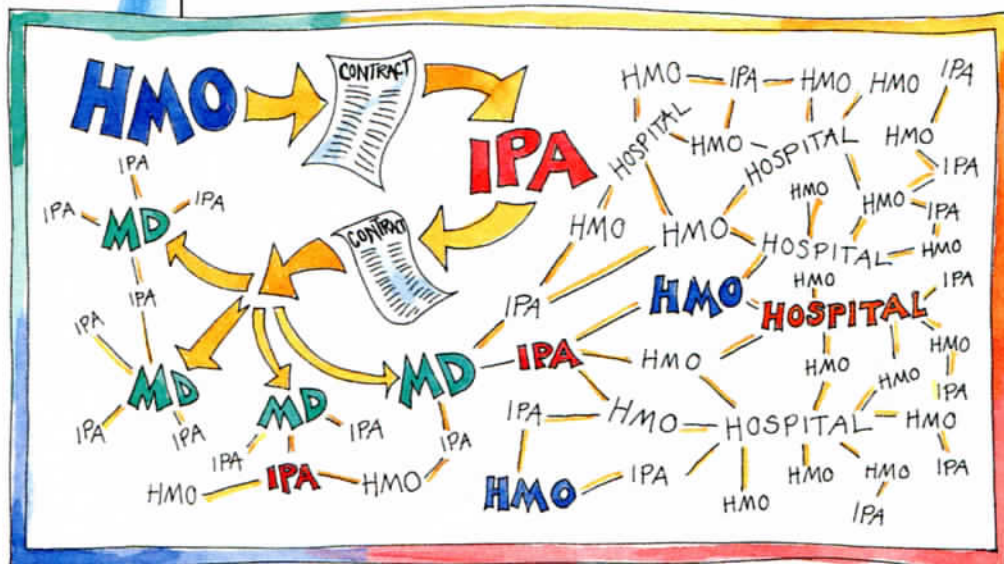 HMO
CONTRACT
IPA
CONTRACT
IPA
IPA
MD
IPA
IPA
IPA
MD
IPA
IPA
MD
IPA
IPA
IPA
HMO
HMO
MD
IPA
HMO
IPA
HMO
HMO
IPA
HOSPITAL
HMO
HOSPITAL
HMO
IPA
HMO
HMO
IPA
HMO
HMO
HOSPITAL
HMO
IPA
HMO
HMO
HOSPITAL
IPA
IPA
HMO
HMO
HMO
IPA
HMO
IPA
HMO
HOSPITAL
HMO
IPA
HMO
IPA
HMO
HMO
HMO
IPA